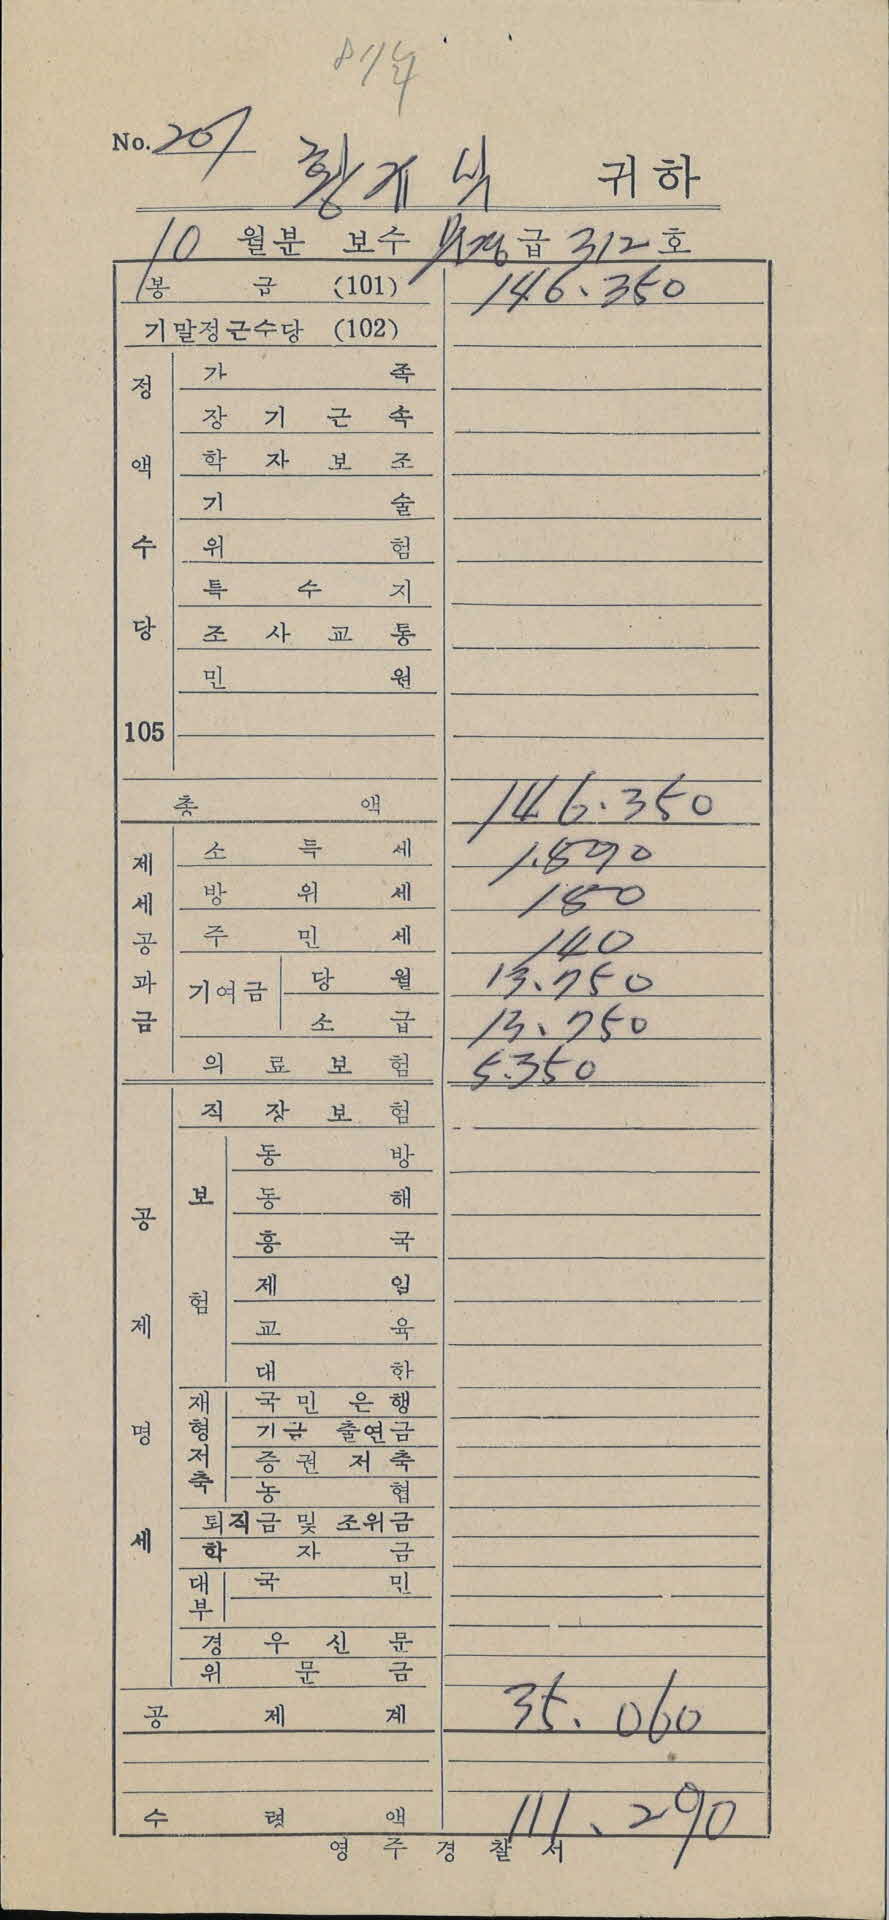 81년
No. 207
황재북 귀하
10 월분 보수 급 312 호
봉 금 (101) 146.350
기말정근수당 (102)
정액수당 105
가 족
장 기 근 속
학 자 보 조
기 술
위 험
특 수 지
조 사 교 통
민 원
총 액 146.350
제세공과금
소 득 세 1.890
방 위 세 180
주 민 세 140
기여금 당 월 13.750
소 급 13.750
의 료 보 험 5.350
공제명세
직 장 보 험
보험
동 방
동 해
흥 국
제 일
교 육
대 한
재형저축
국 민 은 행
기금 출연금
증 권 저 축
농 협
퇴직금 및 조위금
학 자 금
대부
국 민
경 우 신 문
위 문 금
공 제 계 35.060
수 령 액 111.290
영 주 경 찰 서